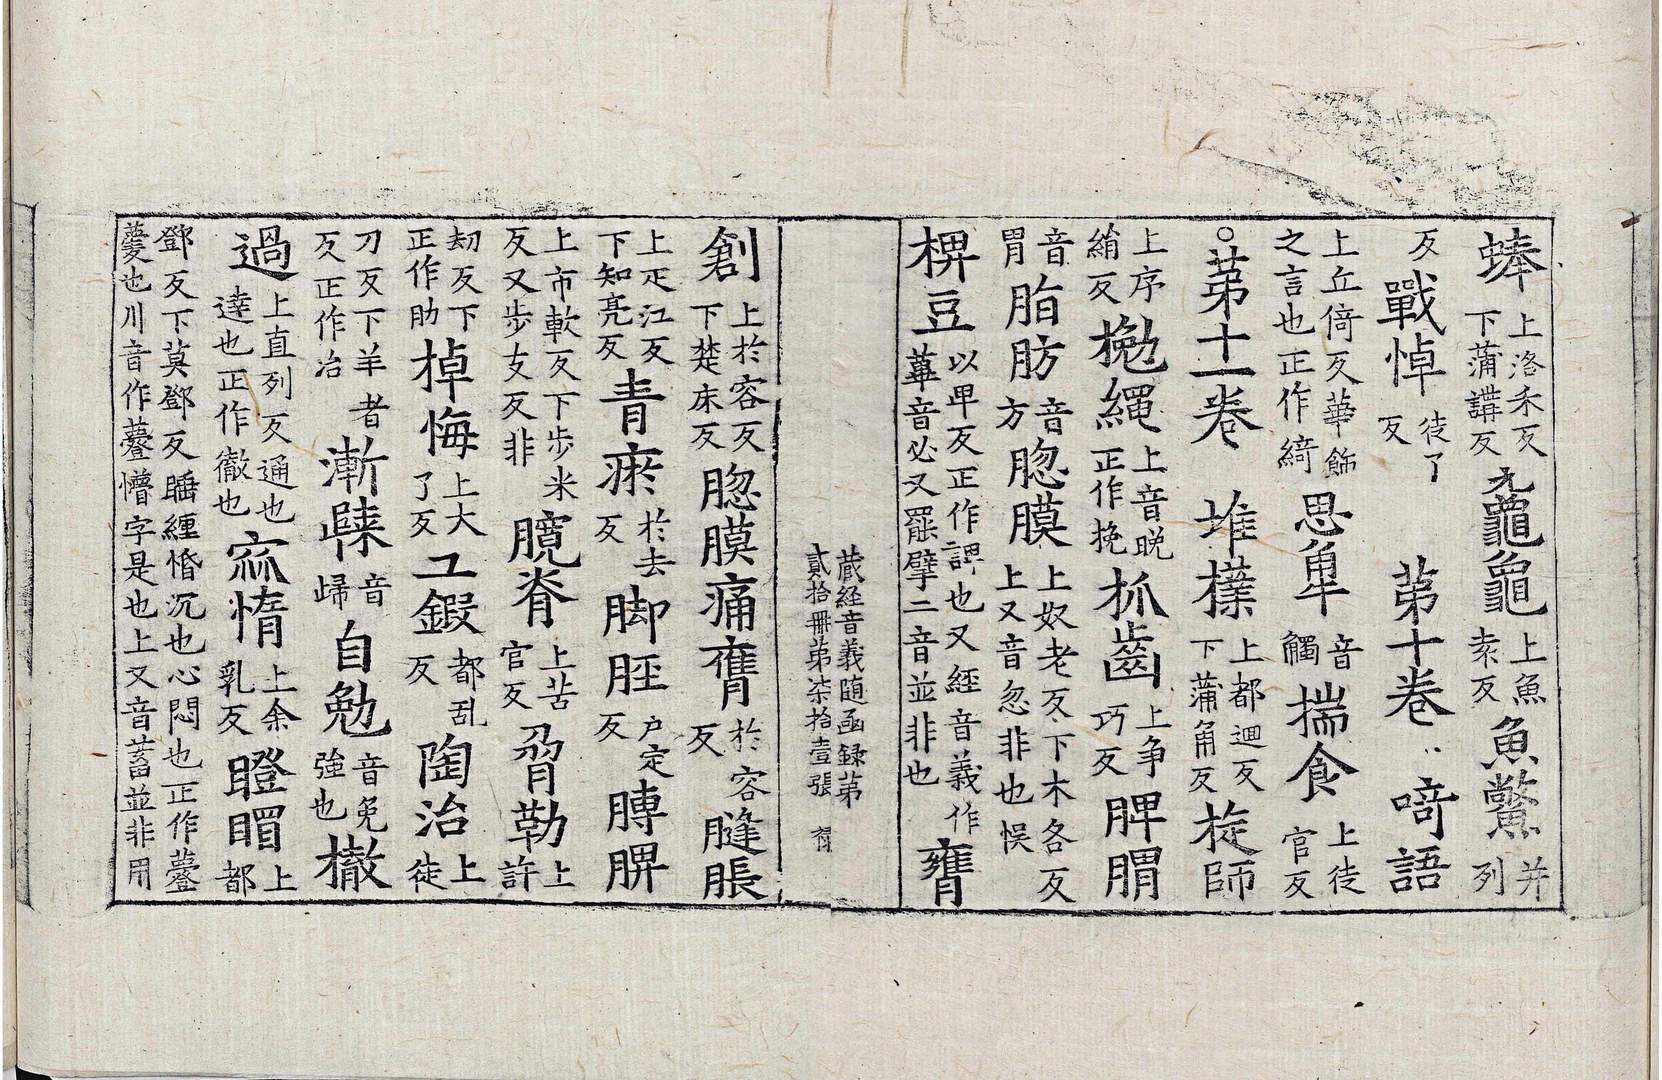 蜯上洛禾反下蒲講反黿龜上魚袁反魚鱉并列
反戰悼徒了反 第十卷 啨語
上丘倚反華飾之言也正作綺思觕音觸揣食上徒官反
○第十一卷 堆㯷上都迴反下蒲角反㨀師
上序絹反挽繩上音晚正作挽抓齒上爭巧反脾䐜
音胃脂肪音方脃膜上奴老反下木各反上又音忽非也悮
椑豆以卑反正作𧫴也又經音義作蓽音必又罷擘二音並非也癰
藏經音義隨函録第貳拾冊第柒拾壹張
創上於容反下楚床反脃膜痛癰於容反膖脹
上疋江反下知亮反青瘀於去反脚脛户定反䏝䏶
上市軟反下步米反又步支反非臗脊上苦官反脅勒上許
刧反下正作肋掉悔上大了反工鍛都乱反陶冶上徒
刀反下羊者反正作冶漸䠍音歸自勉音免強也撤
過上直列反通也達也正作徹也寱惰上余乳反瞪瞢上都
鄧反下莫鄧反睡緾惛沉也心悶也正作㽅
夢也川音作㽅懵字是也上又音蓄並非用